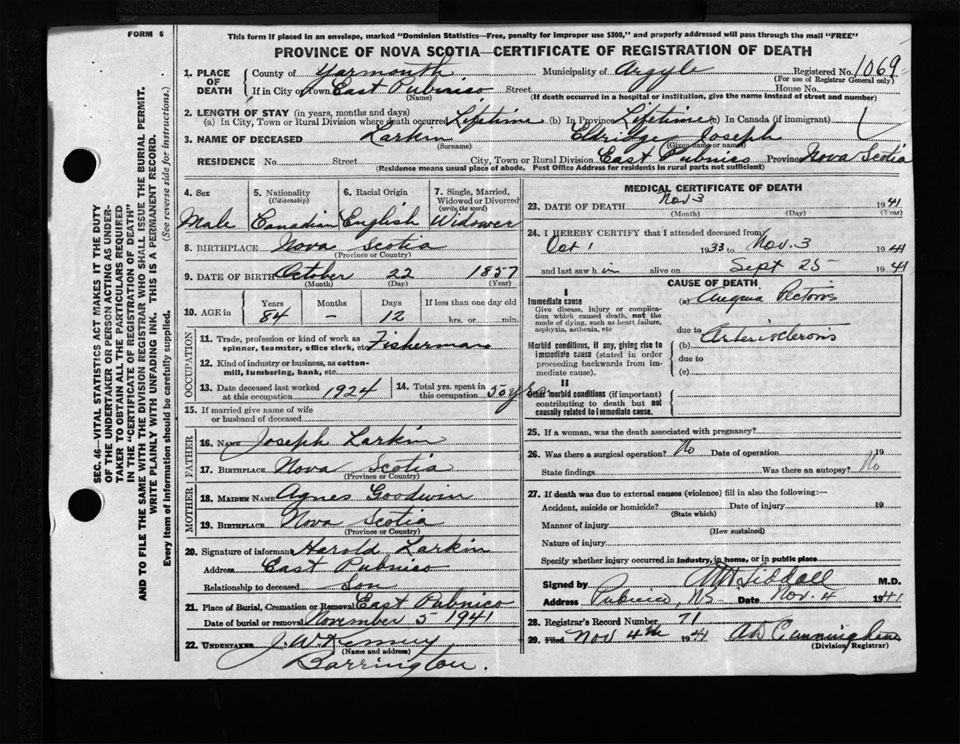 FORM 6
This form if placed in an envelope, marked "Dominion Statistics—Free, penalty for improper use $300," and properly addressed will pass through the mail "FREE"
PROVINCE OF NOVA SCOTIA—CERTIFICATE OF REGISTRATION OF DEATH
SEC. 46—VITAL STATISTICS ACT MAKES IT THE DUTY
OF THE UNDERTAKER OR PERSON ACTING AS UNDER-
TAKER TO OBTAIN ALL THE PARTICULARS REQUIRED
IN THE "CERTIFICATE OF REGISTRATION OF DEATH"
AND TO FILE THE SAME WITH THE DIVISION REGISTRAR WHO SHALL ISSUE THE BURIAL PERMIT.
WRITE PLAINLY WITH UNFADING INK. THIS IS A PERMANENT RECORD.
Every item of information should be carefully supplied. (See reverse side for instructions.)
1. PLACE OF DEATH County of Yarmouth Municipality of Argyle Registered No. 1069
(For use of Registrar General only)
If in City or Town East Pubnico Street House No.
(Name) (If death occurred in a hospital or institution, give the name instead of street and number)
2. LENGTH OF STAY (in years, months and days)
(a) In City, Town or Rural Division where death occurred Lifetime (b) In Province Lifetime (c) In Canada (if immigrant)
3. NAME OF DECEASED Larkin Eldridge Joseph
(Surname) (Given name or names)
RESIDENCE No. Street City, Town or Rural Division East Pubnico Province Nova Scotia
(Residence means usual place of abode. Post Office Address for residents in rural parts not sufficient)
4. Sex 5. Nationality (Citizenship) 6. Racial Origin 7. Single, Married, Widowed or Divorced (write the word)
Male Canadian English Widower
8. BIRTHPLACE Nova Scotia
(Province or Country)
9. DATE OF BIRTH October 22 1857
(Month) (Day) (Year)
10. AGE in Years Months Days If less than one day old
84 – 12 hrs. or min.
OCCUPATION
11. Trade, profession or kind of work as spinner, teamster, office clerk, etc. Fisherman
12. Kind of industry or business, as cotton-mill, lumbering, bank, etc.
13. Date deceased last worked at this occupation 1924 14. Total yrs. spent in this occupation 50 yrs
15. If married give name of wife or husband of deceased
FATHER
16. Name Joseph Larkin
17. Birthplace Nova Scotia
(Province or Country)
MOTHER
18. Maiden Name Agnes Goodwin
19. Birthplace Nova Scotia
(Province or Country)
20. Signature of informant Harold Larkin
Address East Pubnico
Relationship to deceased Son
21. Place of Burial, Cremation or Removal East Pubnico
Date of burial or removal November 5 1941
22. UNDERTAKER J.W. Kenney
(Name and address)
Barrington.
MEDICAL CERTIFICATE OF DEATH
23. DATE OF DEATH Nov 3 1941
(Month) (Day) (Year)
24. I HEREBY CERTIFY that I attended deceased from
Oct 1 1933 to Nov. 3 1941
and last saw him alive on Sept 25 1941
CAUSE OF DEATH
I
Immediate cause (a) Angina Pectoris
Give disease, injury or complication which caused death, not the mode of dying, such as heart failure, asphyxia, asthenia, etc
due to
Morbid conditions, if any, giving rise to immediate cause (stated in order proceeding backwards from immediate cause) (b) Arteriosclerosis
due to
(c)
II
Other morbid conditions (if important) contributing to death but not causally related to immediate cause.
25. If a woman, was the death associated with pregnancy?
26. Was there a surgical operation? No Date of operation 19
State findings Was there an autopsy? No
27. If death was due to external causes (violence) fill in also the following:—
Accident, suicide or homicide? Date of injury 19
(State which)
Manner of injury
(How sustained)
Nature of injury
Specify whether injury occurred in industry, in home, or in public place
Signed by Siddall M.D.
Address Pubnico, NS Date Nov. 4 1941
28. Registrar's Record Number 71
29. Filed Nov 4th 1941 Cunningham
(Division Registrar)